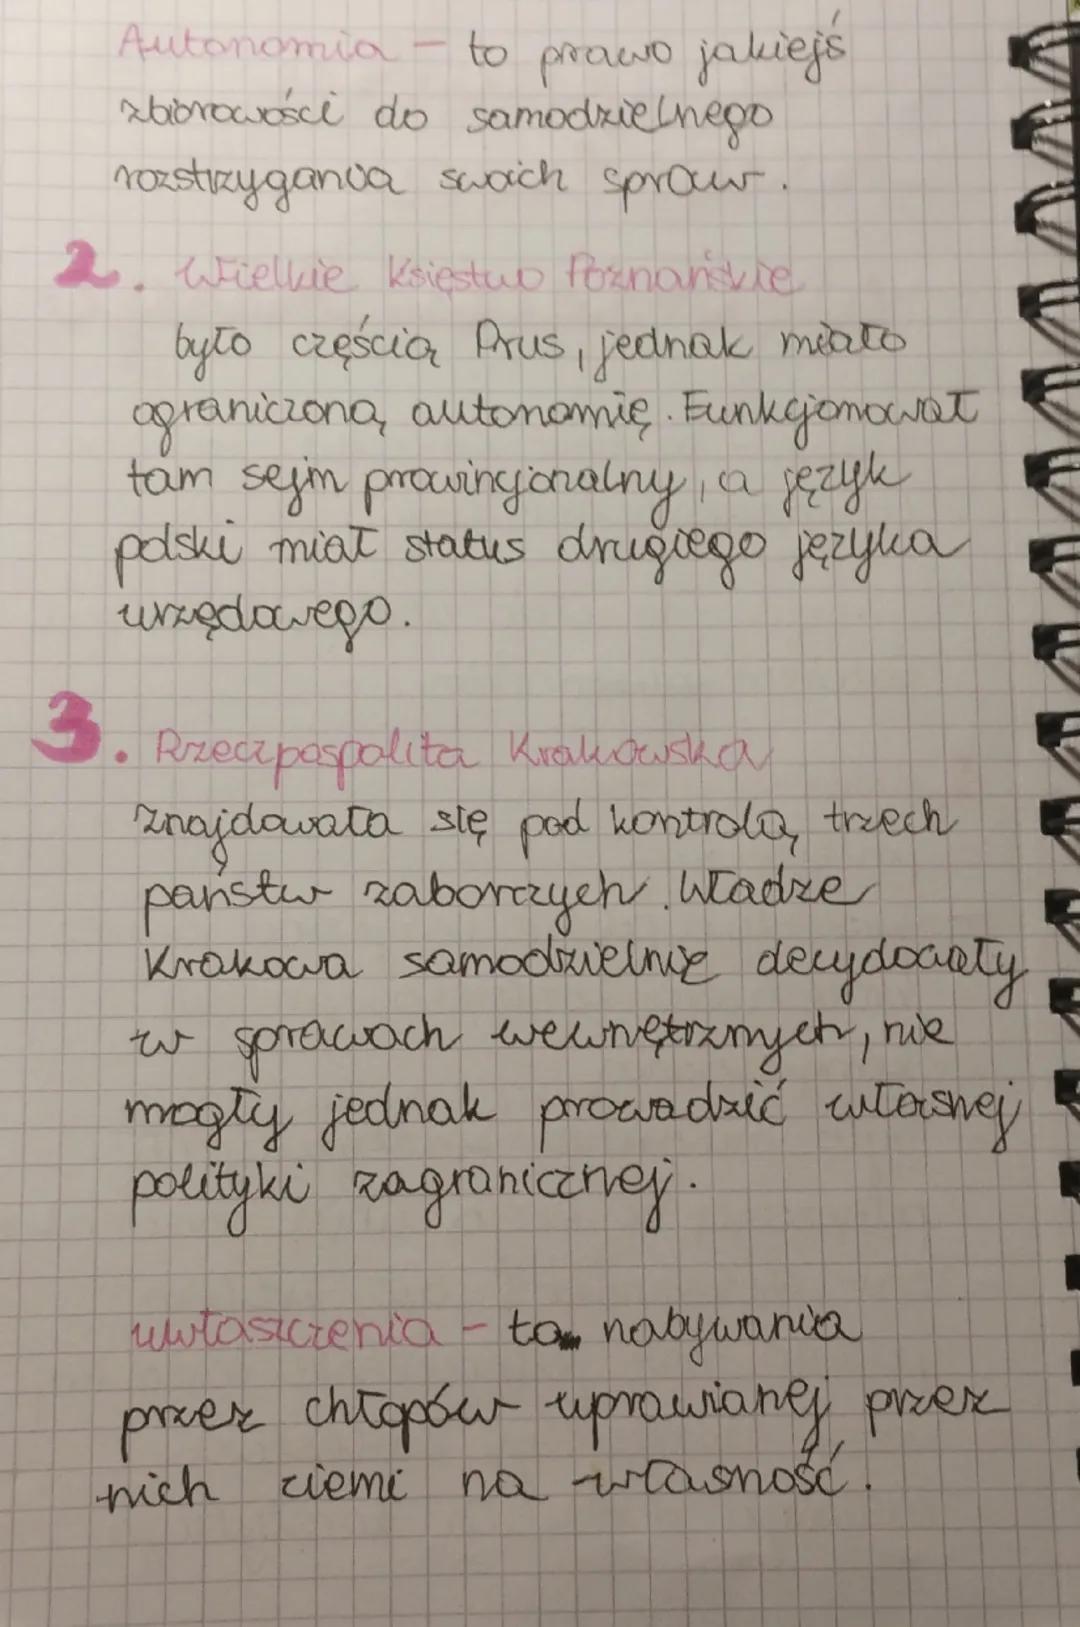 Autonomia - to prawo jakiejś
zbiorowości do samodzielnego
rozstrzygania swoich spraw.
2. Wielkie Księstwo Poznańskie
było częścią Prus, jednak miało
ograniczoną autonomię. Funkcjonował
tam sejm prowincjonalny, a język
polski miał status drugiego języka
urzędowego.
3. Rzeczpospolita Krakowska
znajdowała się pod kontrolą trzech
państw zaborczych. Władze
Krakowa samodzielnie decydowały
w sprawach wewnętrznych, nie
mogły jednak prowadzić własnej
polityki zagranicznej.
uwłaszczenia - to nabywania
przez chłopów uprawianej przez
nich ziemi na własność.